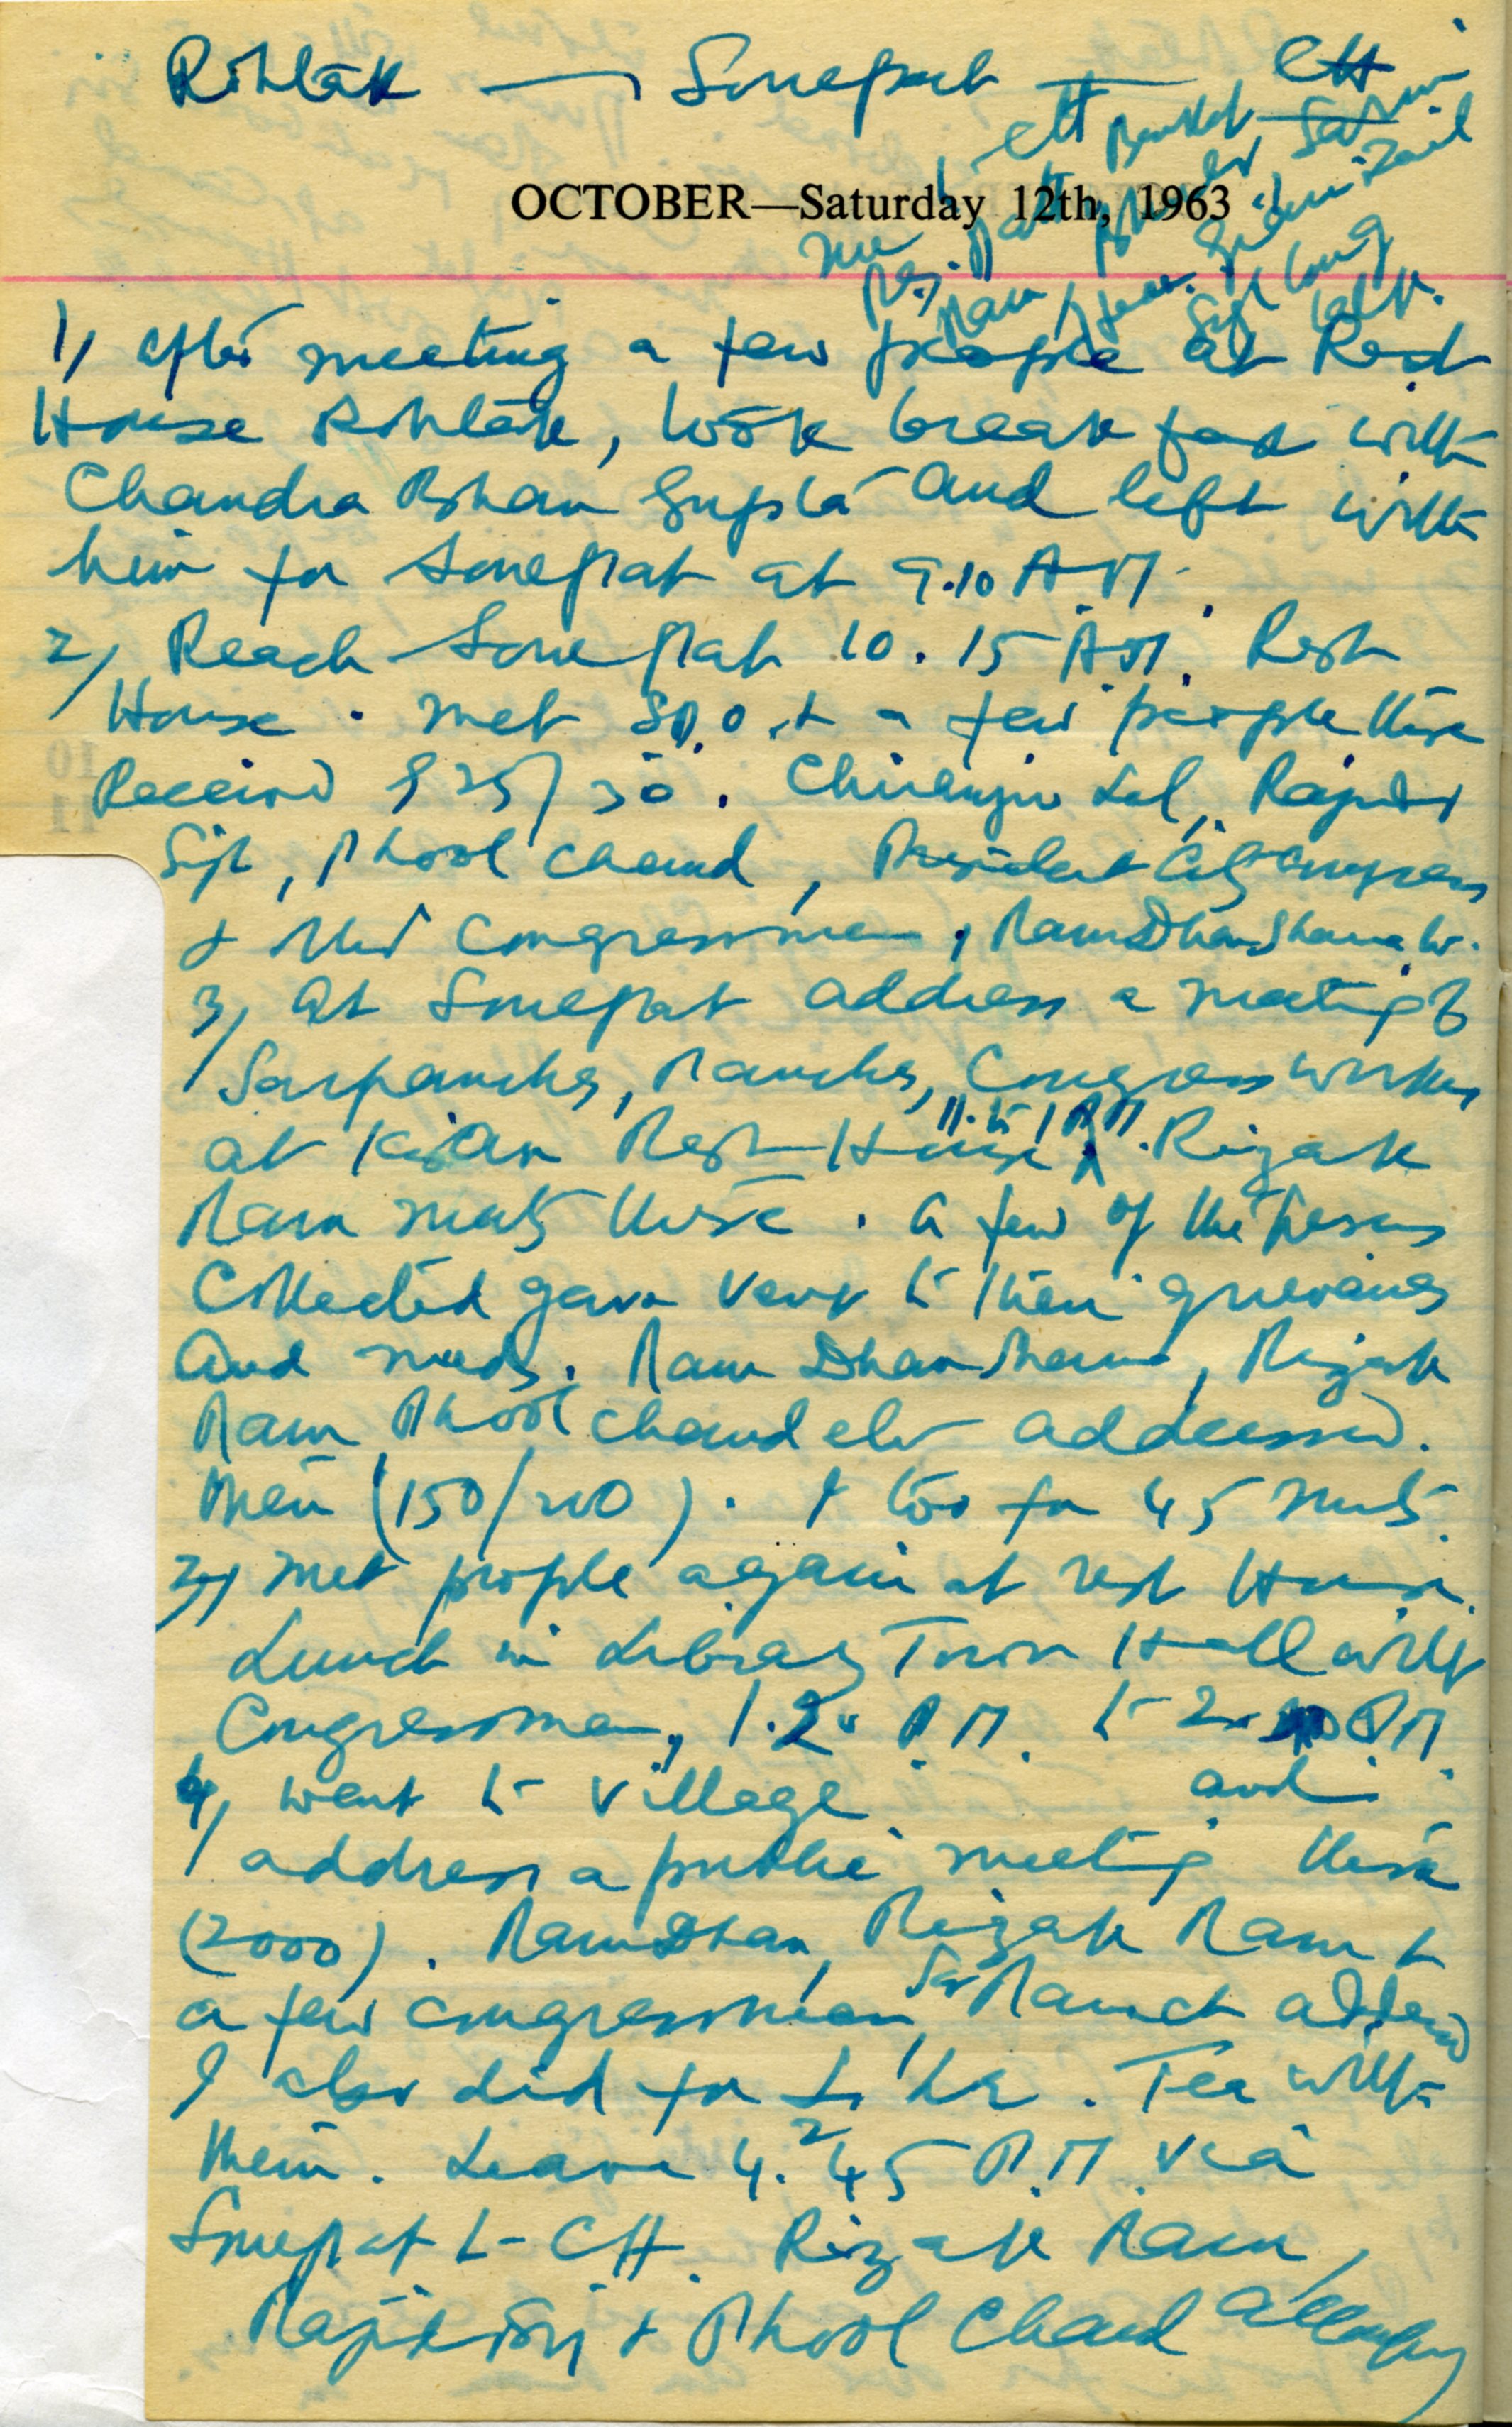 Rohtak — Sonepat — CH
OCTOBER—Saturday 12th, 1963
1, After meeting a few people at Rest
House Rohtak, took break fast with
Chandra Bhan Gupta and left with
him for Sonepat at 9.10 A.M.
2, Reach Sonepat 10.15 A.M. Rest
House. met SDO + a few people there
Received 825/30. Chiranjiv Lal, Rajinder
Sigh, Phool Chand, President City Congress
& other Congressmen, Ram Dhan Sharma
3, At Sonepat address a meeting of
Sarpanches, Panches, Congress workers
at Kisan Rest House 11. to 1 P.M. Rizak
Ram meets there. A few of the persons
Collected gave vent to their grievances
and needs. Ram Dhan Sharma, Rizak
Ram Phool Chand etc addressed.
them (150/200). I too for 45 mnts.
3, met people again at rest House.
Lunch in Library Town Hall with
Congressmen, 1.20 P.M. to P.M.
4, went to village and
address a public meeting there
(2000). Ram Dhan, Rizak Ram &
a few congressmen, Sar Panch addressed
I also did for hr. Tea with
them. Leave 4.45 P.M. via
Sonepat to CH. Rizak Ram,
& Phool Chand